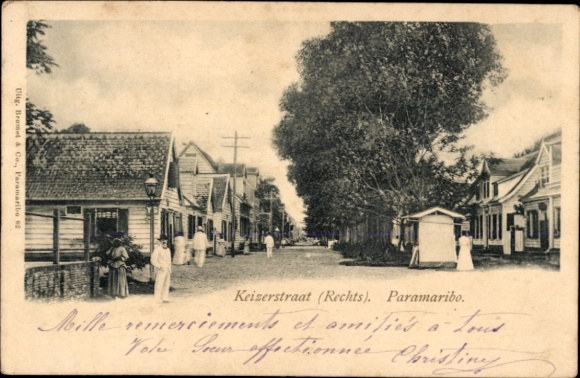 Uitg. Bromet & Co., Paramaribo 62
Keizerstraat (Rechts). Paramaribo.
Mille remerciements et amitiés à tous
Votre Sœur affectionnée Christine